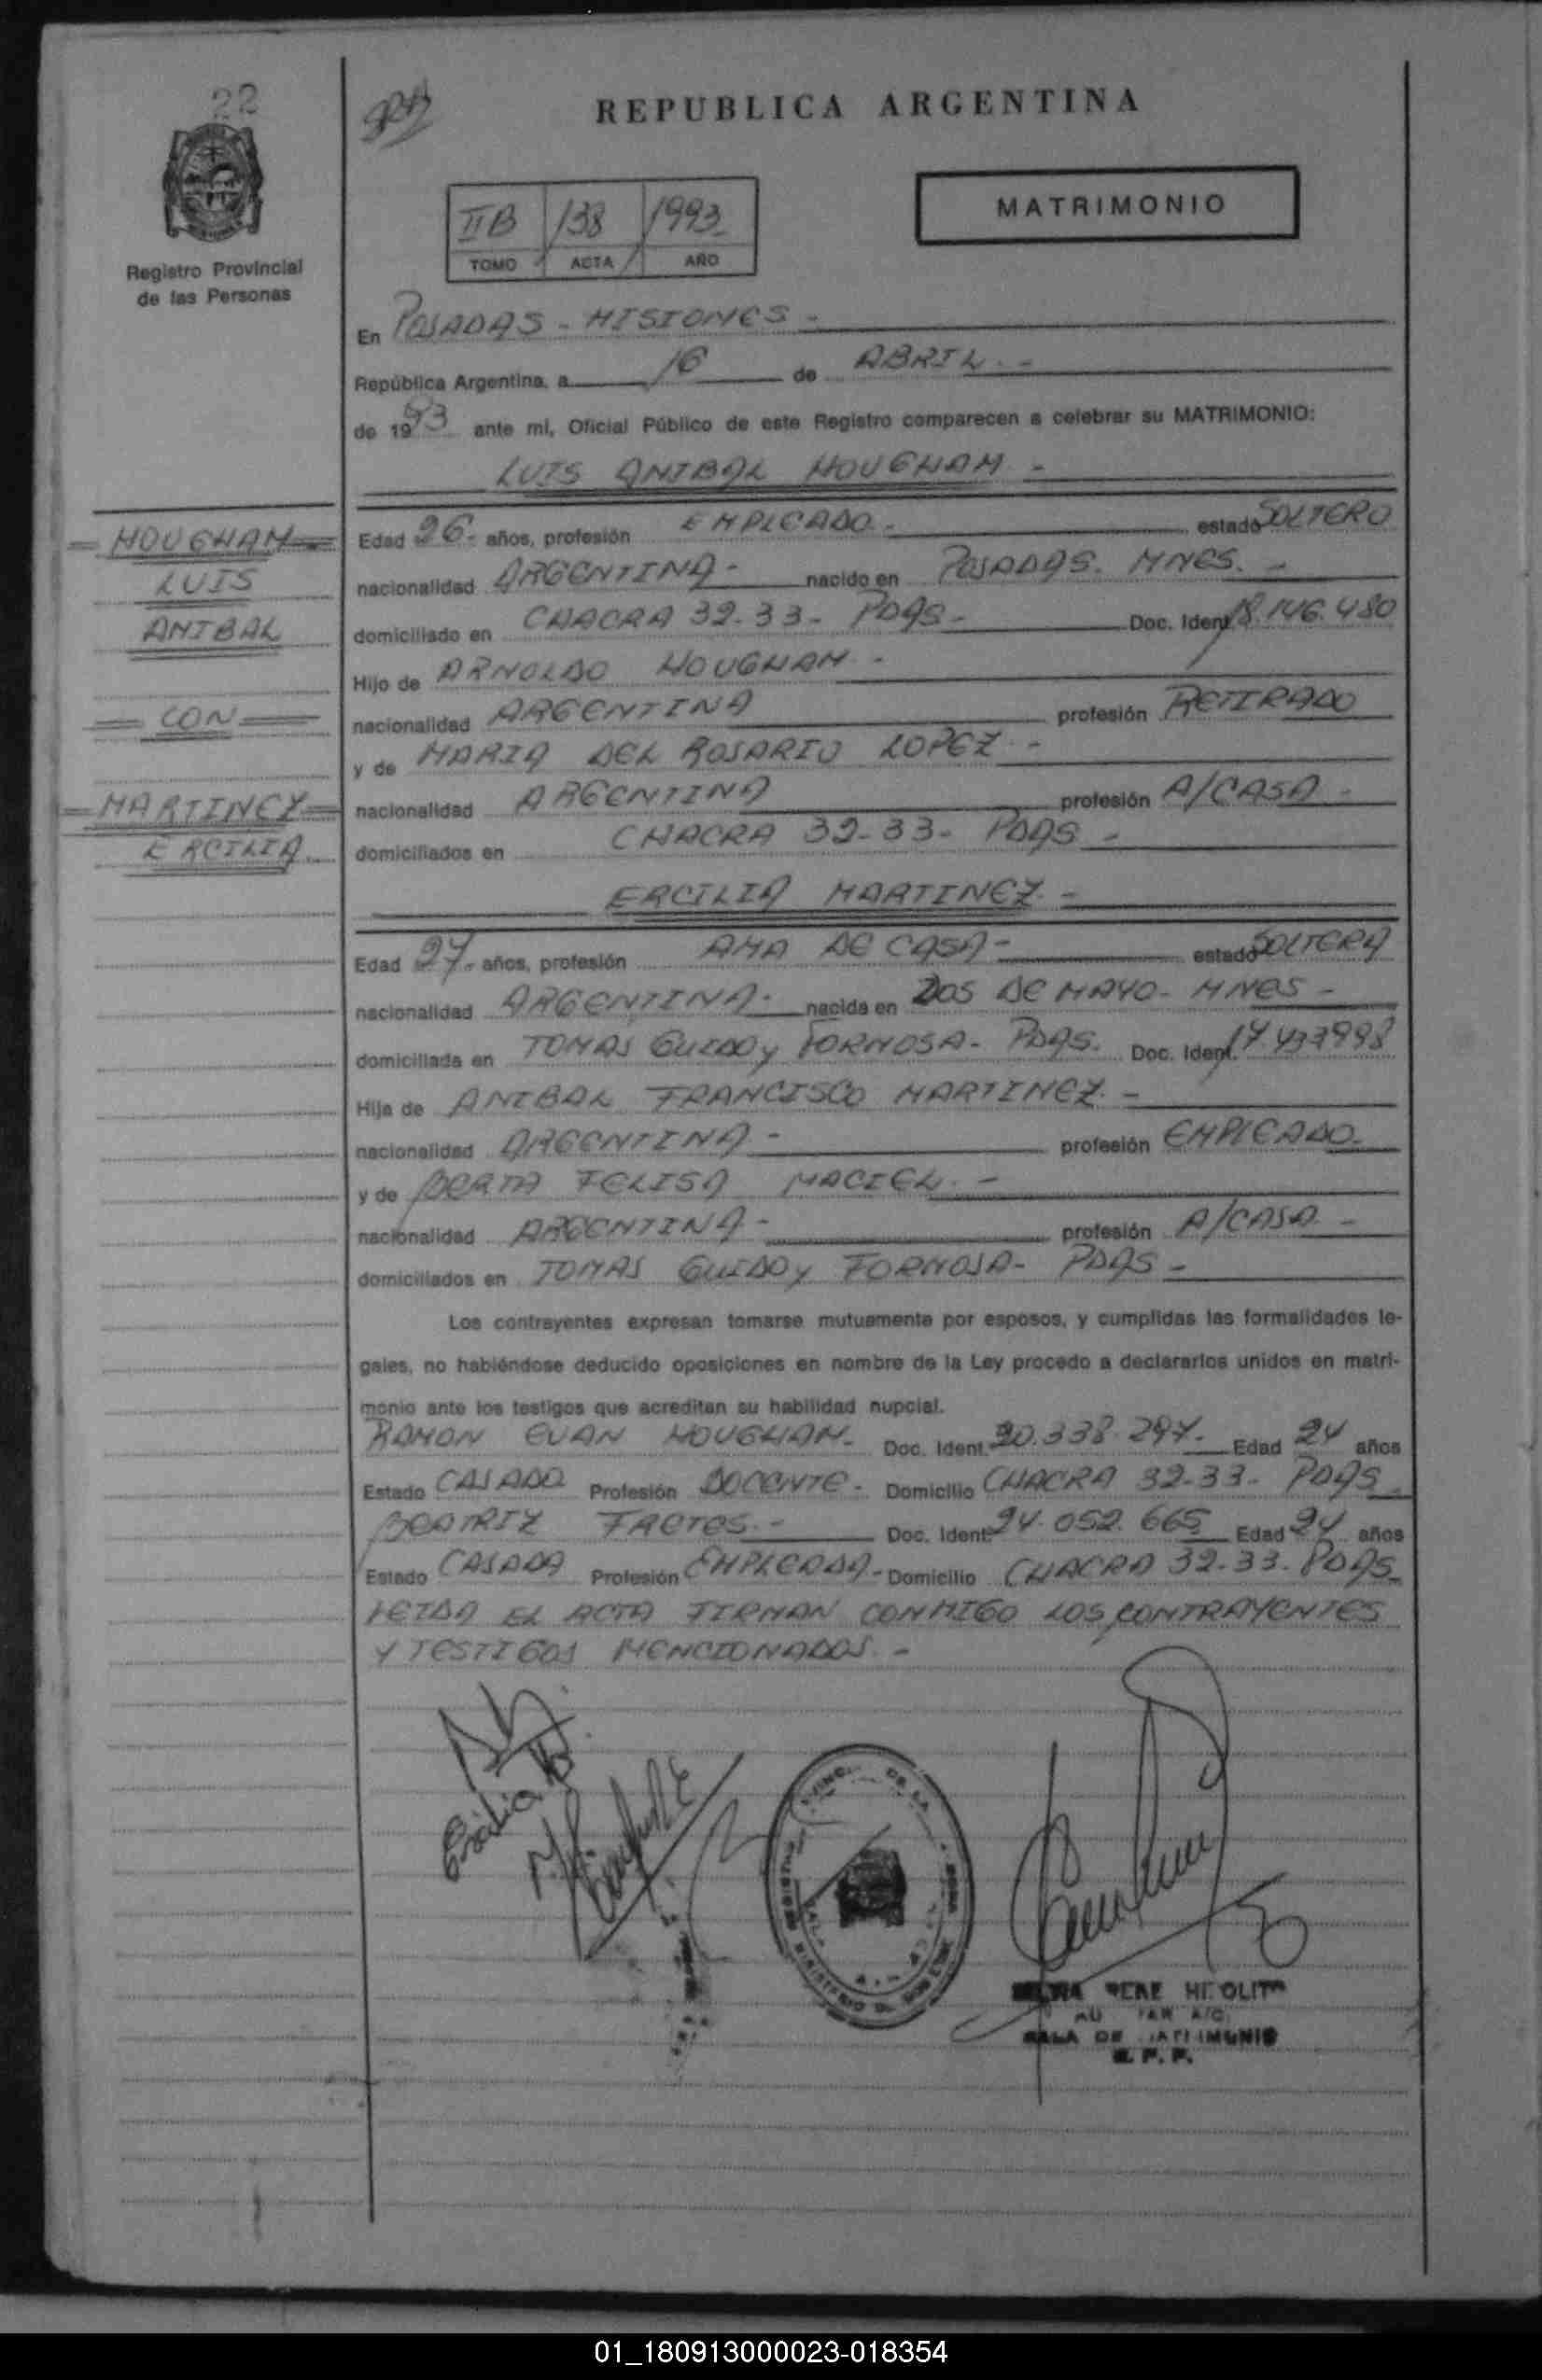 22
REPUBLICA ARGENTINA
MATRIMONIO
IIB 138 1993
TOMO ACTA AÑO
Registro Provincial
de las Personas
En POSADAS - MISIONES -
República Argentina, a 16 de ABRIL . -
de 1993 ante mi, Oficial Público de este Registro comparecen a celebrar su MATRIMONIO:
LUIS ANIBAL HOUGHAM -
HOUGHAM
LUIS
ANIBAL
CON
MARTINEZ
ERCILIA
Edad 26- años, profesión EMPLEADO - estado SOLTERO
nacionalidad ARGENTINA - nacido en POSADAS. MNES. -
domiciliado en CHACRA 32-33- PDAS - Doc. Ident. 18.146.480
Hijo de ARNOLDO HOUGHAM -
nacionalidad ARGENTINA profesión RETIRADO
y de MARIA DEL ROSARIO LOPEZ - -
nacionalidad ARGENTINA profesión A/CASA -
domiciliados en CHACRA 32-33- PDAS -
ERCILIA MARTINEZ -
Edad 27- años, profesión AMA DE CASA - estado SOLTERA
nacionalidad ARGENTINA - nacida en DOS DE MAYO - MNES -
domiciliada en TOMAS GUIDO y FORMOSA - PDAS. Doc. Ident. 17.433998
Hija de ANIBAL FRANCISCO MARTINEZ -
nacionalidad ARGENTINA - profesión EMPLEADO -
y de BERTA FELISA MACIEL . -
nacionalidad ARGENTINA - profesión A/CASA -
domiciliados en TOMAS GUIDO y FORMOSA - PDAS -
Los contrayentes expresan tomarse mutuamente por esposos, y cumplidas las formalidades le-
gales, no habiéndose deducido oposiciones en nombre de la Ley procedo a declararlos unidos en matri-
monio ante los testigos que acreditan su habilidad nupcial.
RAMON EVAN HOUGHAM - Doc. Ident. 20.338.297- Edad 24 años
Estado CASADO Profesión DOCENTE - Domicilio CHACRA 32-33- PDAS
BEATRIZ Doc. Ident. 24.052.665 Edad 24 años
Estado CASADA Profesión EMPLEADA - Domicilio CHACRA 32-33. PDAS
LEIDA EL ACTA FIRMAN CONMIGO LOS CONTRAYENTES
Y TESTIGOS MENCIONADOS . -
Ercilia M
RENE
SALA DE MATRIMONIO
01_180913000023-018354